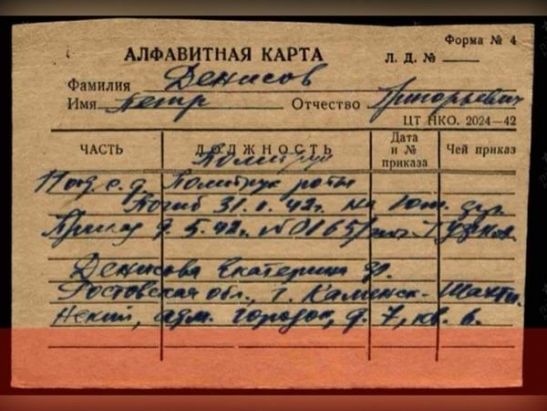 Форма № 4
АЛФАВИТНАЯ КАРТА
Л. Д. №
Фамилия Денисов
Имя Петр Отчество Григорьевич
ЦТ НКО. 2024—42
ЧАСТЬ ДОЛЖНОСТЬ Дата и № приказа Чей приказ
Политрук
с. д. Политрук роты
Погиб 31. 42г. на
Приказ 9. 5. 42г. №0165/
Денисова Екатерина
Ростовская обл., г. Каменск-Шахтин
нский, адм. городок, д. 7, кв. 6.